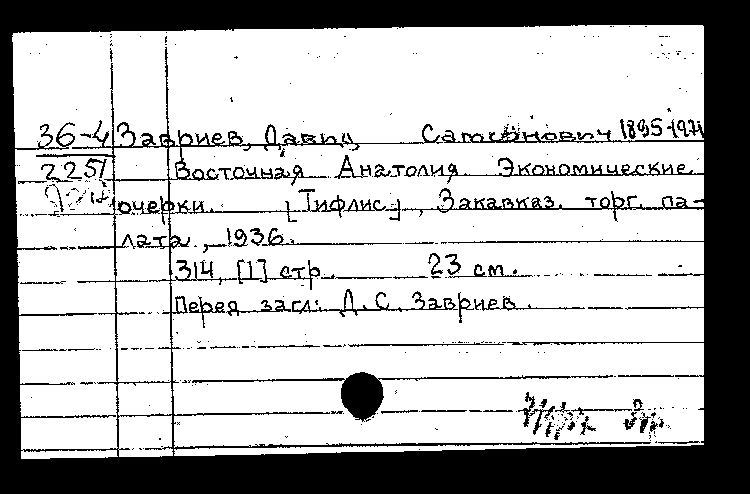 36-4 Завриев, Давид Самсонович 1895-
2251 Восточная Анатолия. Экономические
очерки. [Тифлис], Закавказ. торг. па-
лата, 1936.
314, [1] стр. 23 см.
Перед загл: Д. С. Завриев.